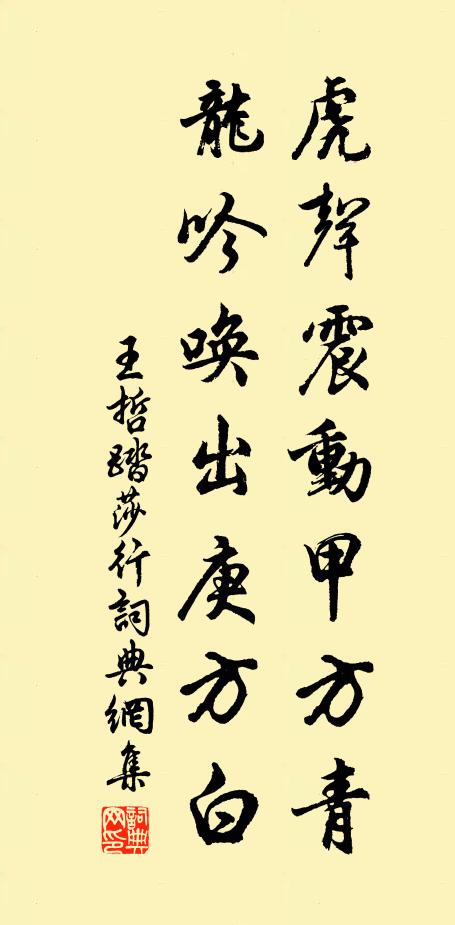 虎聲震動甲方青
龍吟喚出庚方白
王哲踏莎行詞典網集
詞典网印